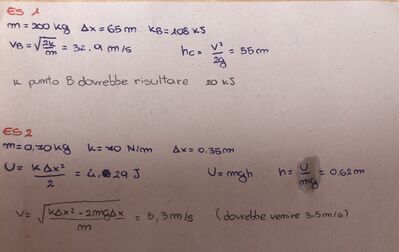 ES 1
m = 200 kg Δx = 65 m KB = 108 KJ
VB = √(2k/m) = 32,9 m/s hc = V²/2g = 55 m
Il punto B dovrebbe risultare 20 KJ
ES 2
m = 0,70 kg k = 70 N/m Δx = 0.35 m
U = KΔx²/2 = 4,29 J U = mgh h = U/mg = 0,62 m
V = √((kΔx² - 2mgΔx)/m) = 5,3 m/s (dovrebbe venire 3.5 m/s)